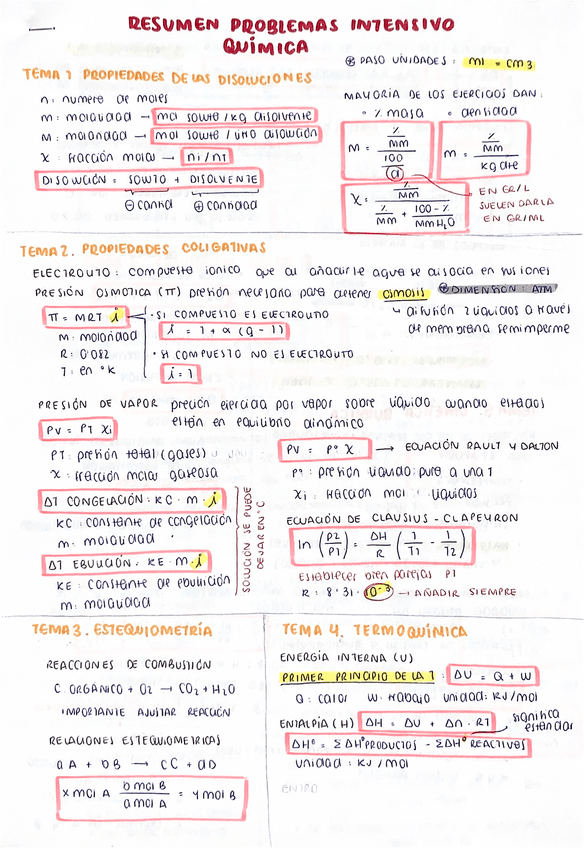 RESUMEN PROBLEMAS INTENSIVO
QUÍMICA
TEMA 1 PROPIEDADES DE LAS DISOLUCIONES
n: numero de moles
m: molalidad → mol soluto / kg disolvente
M: molaridad → mol soluto / litro disolución
X: fracción molar → ni / nT
DISOLUCIÓN = SOLUTO + DISOLVENTE
⊖ cantidad ⊕ cantidad
⊕ PASO UNIDADES: ml = cm3
MAYORÍA DE LOS EJERCICIOS DAN:
◦ % masa ◦ densidad
M = (% / MM) / (100 / d)
m = (% / MM) / kg dte
X = (% / MM) / (% / MM + 100-% / MM H2O)
EN GR/L
SUELEN DARLA
EN GR/ML
TEMA 2. PROPIEDADES COLIGATIVAS
ELECTROLITO: compuesto ionico que al añadirle agua se disocia en sus iones
PRESIÓN OSMOTICA (π) presión necesaria para detener osmosis ⊕ DIMENSIÓN: ATM
↳ difusión 2 liquidos a través
de membrana semimperme
π = MRT i
M: molaridad
R: 0'082
T: en °K
· SI COMPUESTO ES ELECTROLITO
i = 1 + α (q - 1)
· SI COMPUESTO NO ES ELECTROLITO
i = 1
PRESIÓN DE VAPOR preción ejercida por vapor sobre líquido cuando estados
están en equilibrio dinámico
PV = PT Xi
PT: presión total (gases)
X: fracción molar gaseosa
PV = P° X → ECUACIÓN RAULT Y DALTON
P°: presión líquido puro a una T
Xi: fracción mol líquidos
ΔT CONGELACIÓN: KC · m · i
KC: constante de congelación
m: molalidad
ΔT EBULLICIÓN: KE · m · i
KE: constante de ebullición
m: molalidad
SOLUCIÓN SE PUEDE
DEJAR EN °C
ECUACIÓN DE CLAUSIUS - CLAPEYRON
ln (P2 / P1) = ΔH / R (1 / T1 - 1 / T2)
Establecer bien parejas PT
R: 8'31·10⁻³ → AÑADIR SIEMPRE
TEMA 3. ESTEQUIOMETRÍA
REACCIONES DE COMBUSTIÓN
C. ORGÁNICO + O2 → CO2 + H2O
IMPORTANTE AJUSTAR REACCIÓN
RELACIONES ESTEQUIOMETRICAS
aA + bB → cC + dD
x mol A b mol B / a mol A = y mol B
TEMA 4. TERMOQUÍMICA
ENERGÍA INTERNA (U)
PRIMER PRINCIPIO DE LA T: ΔU = Q + W
Q: calor W: trabajo unidad: KJ/mol
ENTALPÍA (H) ΔH = ΔU + Δn · RT
significa
estándar
ΔH° = ΣΔH°PRODUCTOS - ΣΔH° REACTIVOS
unidad: KJ / mol